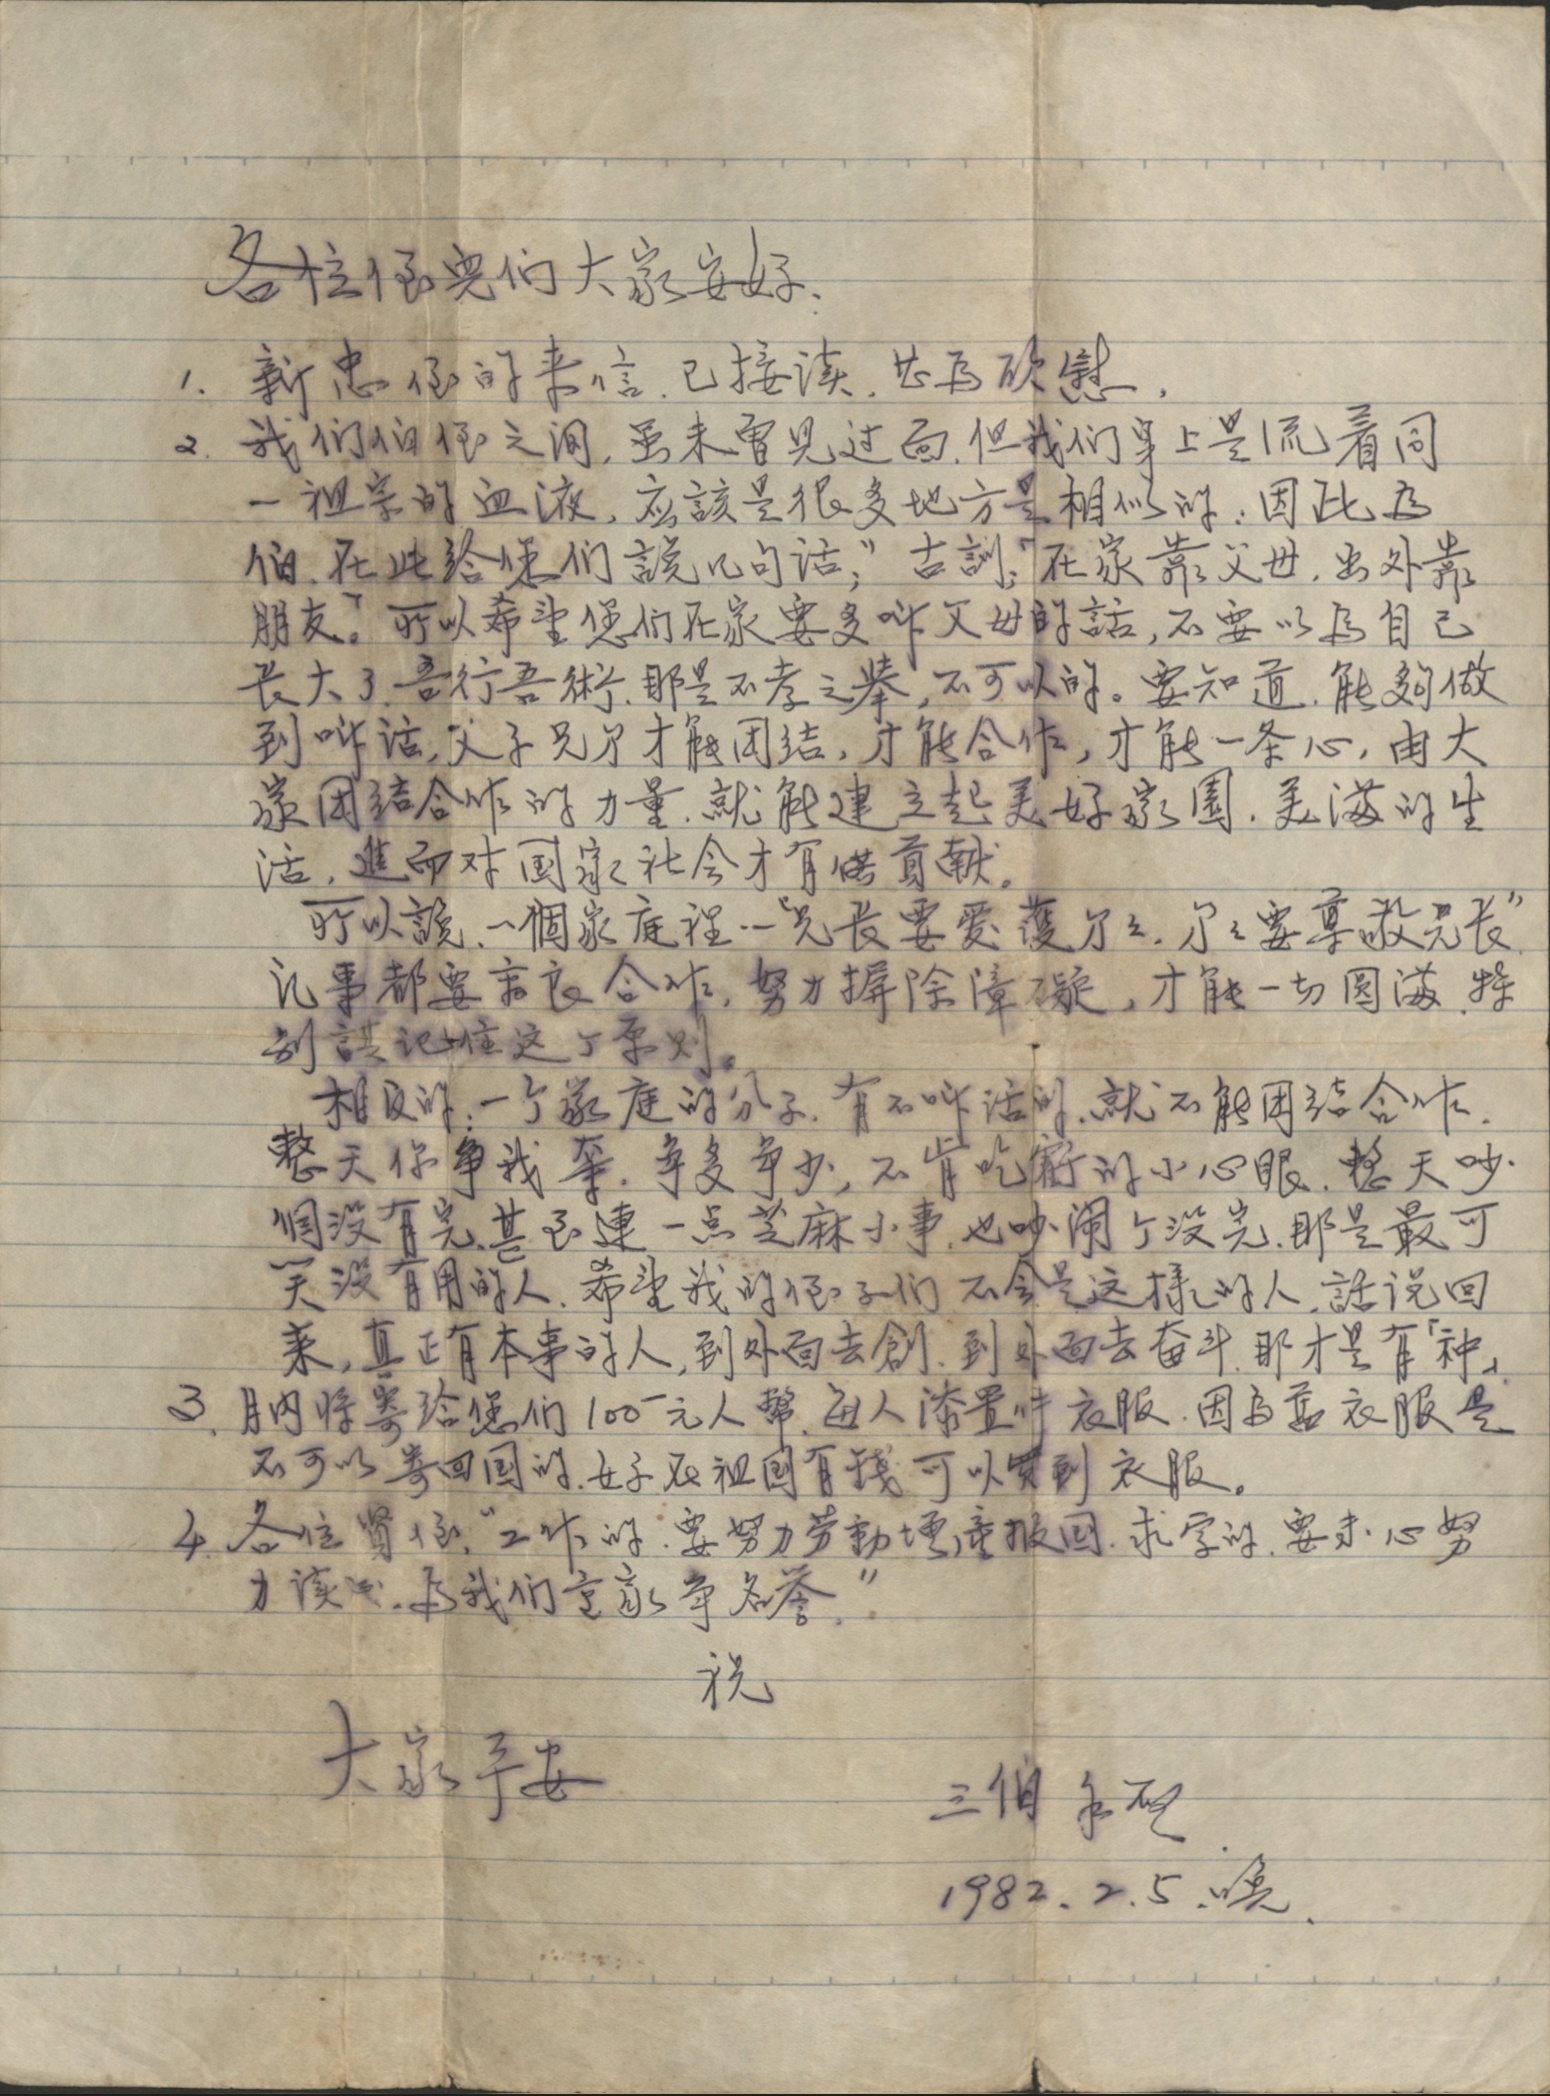 各位侄兒们大家安好.
1. 新忠侄的来信.已接读.甚為欣慰.
2. 我们伯侄之间,虽未曾見过面.但我们身上是流着同
一祖宗的血液,应該是很多地方是相似的.因此為
伯.在此给您们説几句话;"古訓;"在家靠父母.出外靠
朋友"。所以希望您们在家要多听父母的話,不要以為自己
长大了.吾行吾術.那是不孝之举,不可以的。要知道.能夠做
到听话,父子兄弟才能团结,才能合作,才能一条心,由大
家团结合作的力量.就能建立起美好家園.美满的生
活,進而对国家社会才有偌貢献。
所以說.一個家庭裡--"兄长要爱護弟弟.弟弟要尊敬兄长"
凡事都要求良合作,努力摒除障礙,才能一切圆满.特
别謨记住这个原则。
相反的;一个家庭的分子.有不听话的.就不能团结合作.
整天你争我奪.争多争少,不肯吃虧的小心眼.整天吵
個没有完.甚至連一点芝麻小事.也吵闹个没完.那是最可
笑没有用的人.希望我的侄子们不会是这樣的人.話说回
来,真正有本事的人,到外面去創.到外面去奋斗.那才是有「种」
3. 月内将寄给您们100元人幣.每人添置件衣服.因為舊衣服是
不可以寄回国的.好在祖国有錢可以買到衣服。
4. 各位贤侄,"工作的.要努力劳動 报国.求学的.要 心努
力读书.為我们 家争名誉."
祝
大家平安
三伯
1982.2.5.晚.